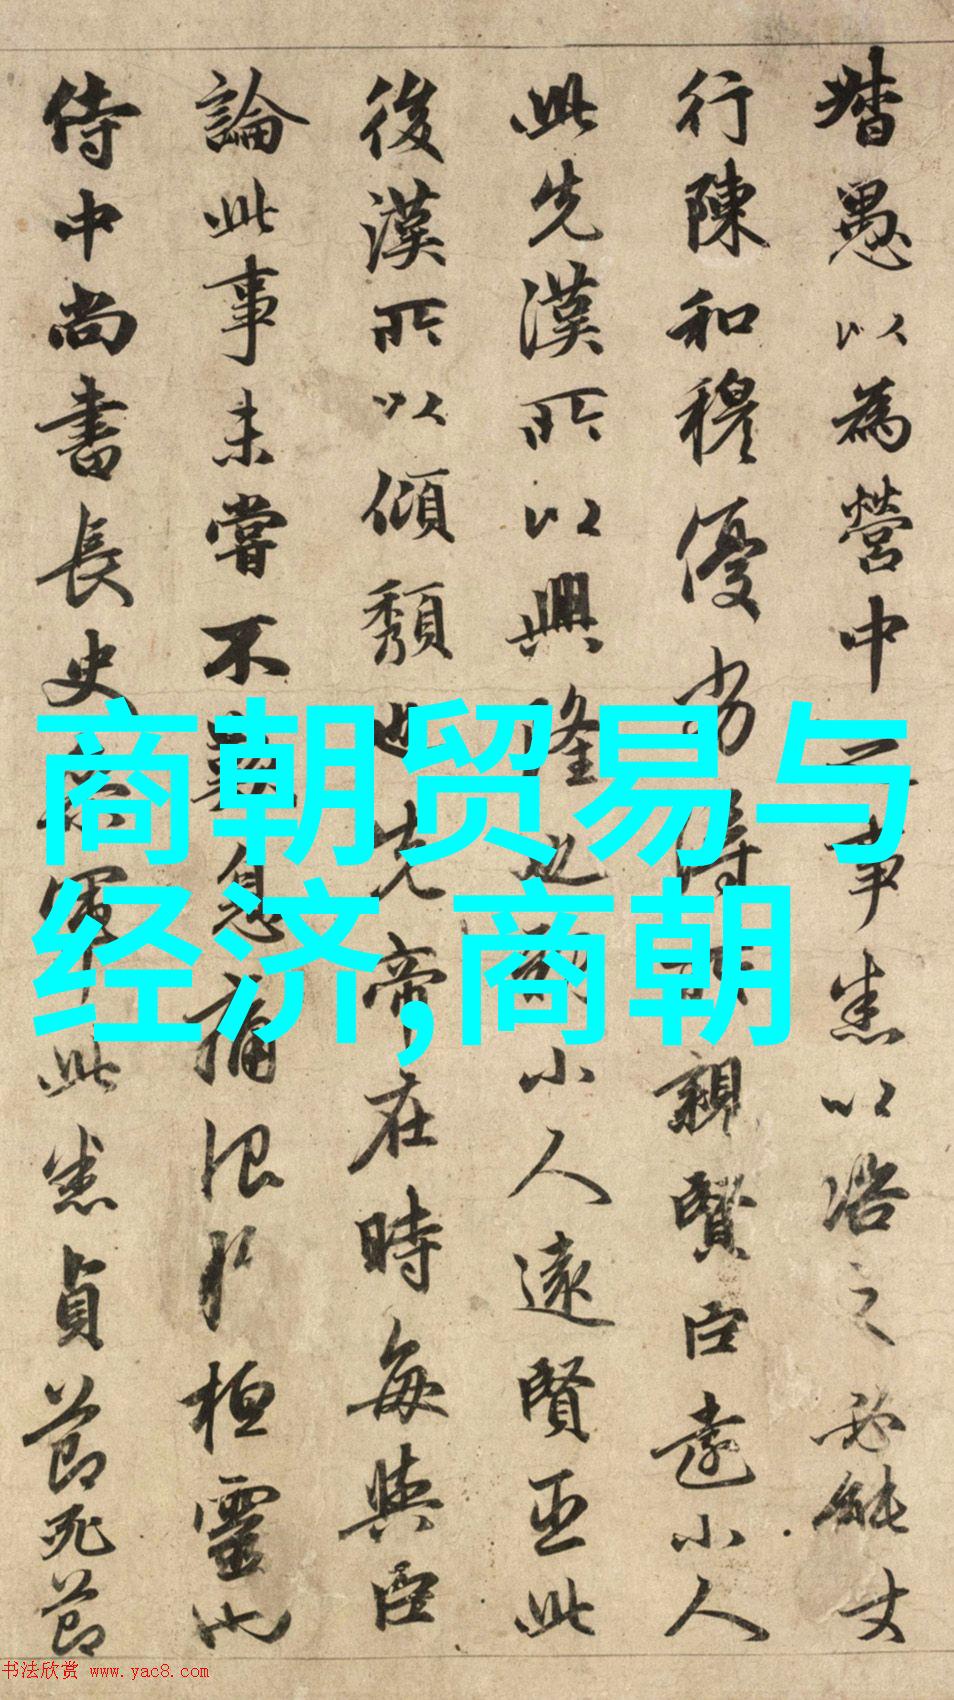 督愚以為營中之事悉以咨之必能丈
行陳和穆優劣得所親賢臣遠小人
此先漢所以興隆也親小人遠賢臣此
後漢所以傾頹也先帝在時每與臣
論此事未嘗不歎息痛恨於桓靈也
侍中尚書長史參軍此悉貞節死節
商朝贸易与
经济,商朝
书法欣赏 www.yac8.com